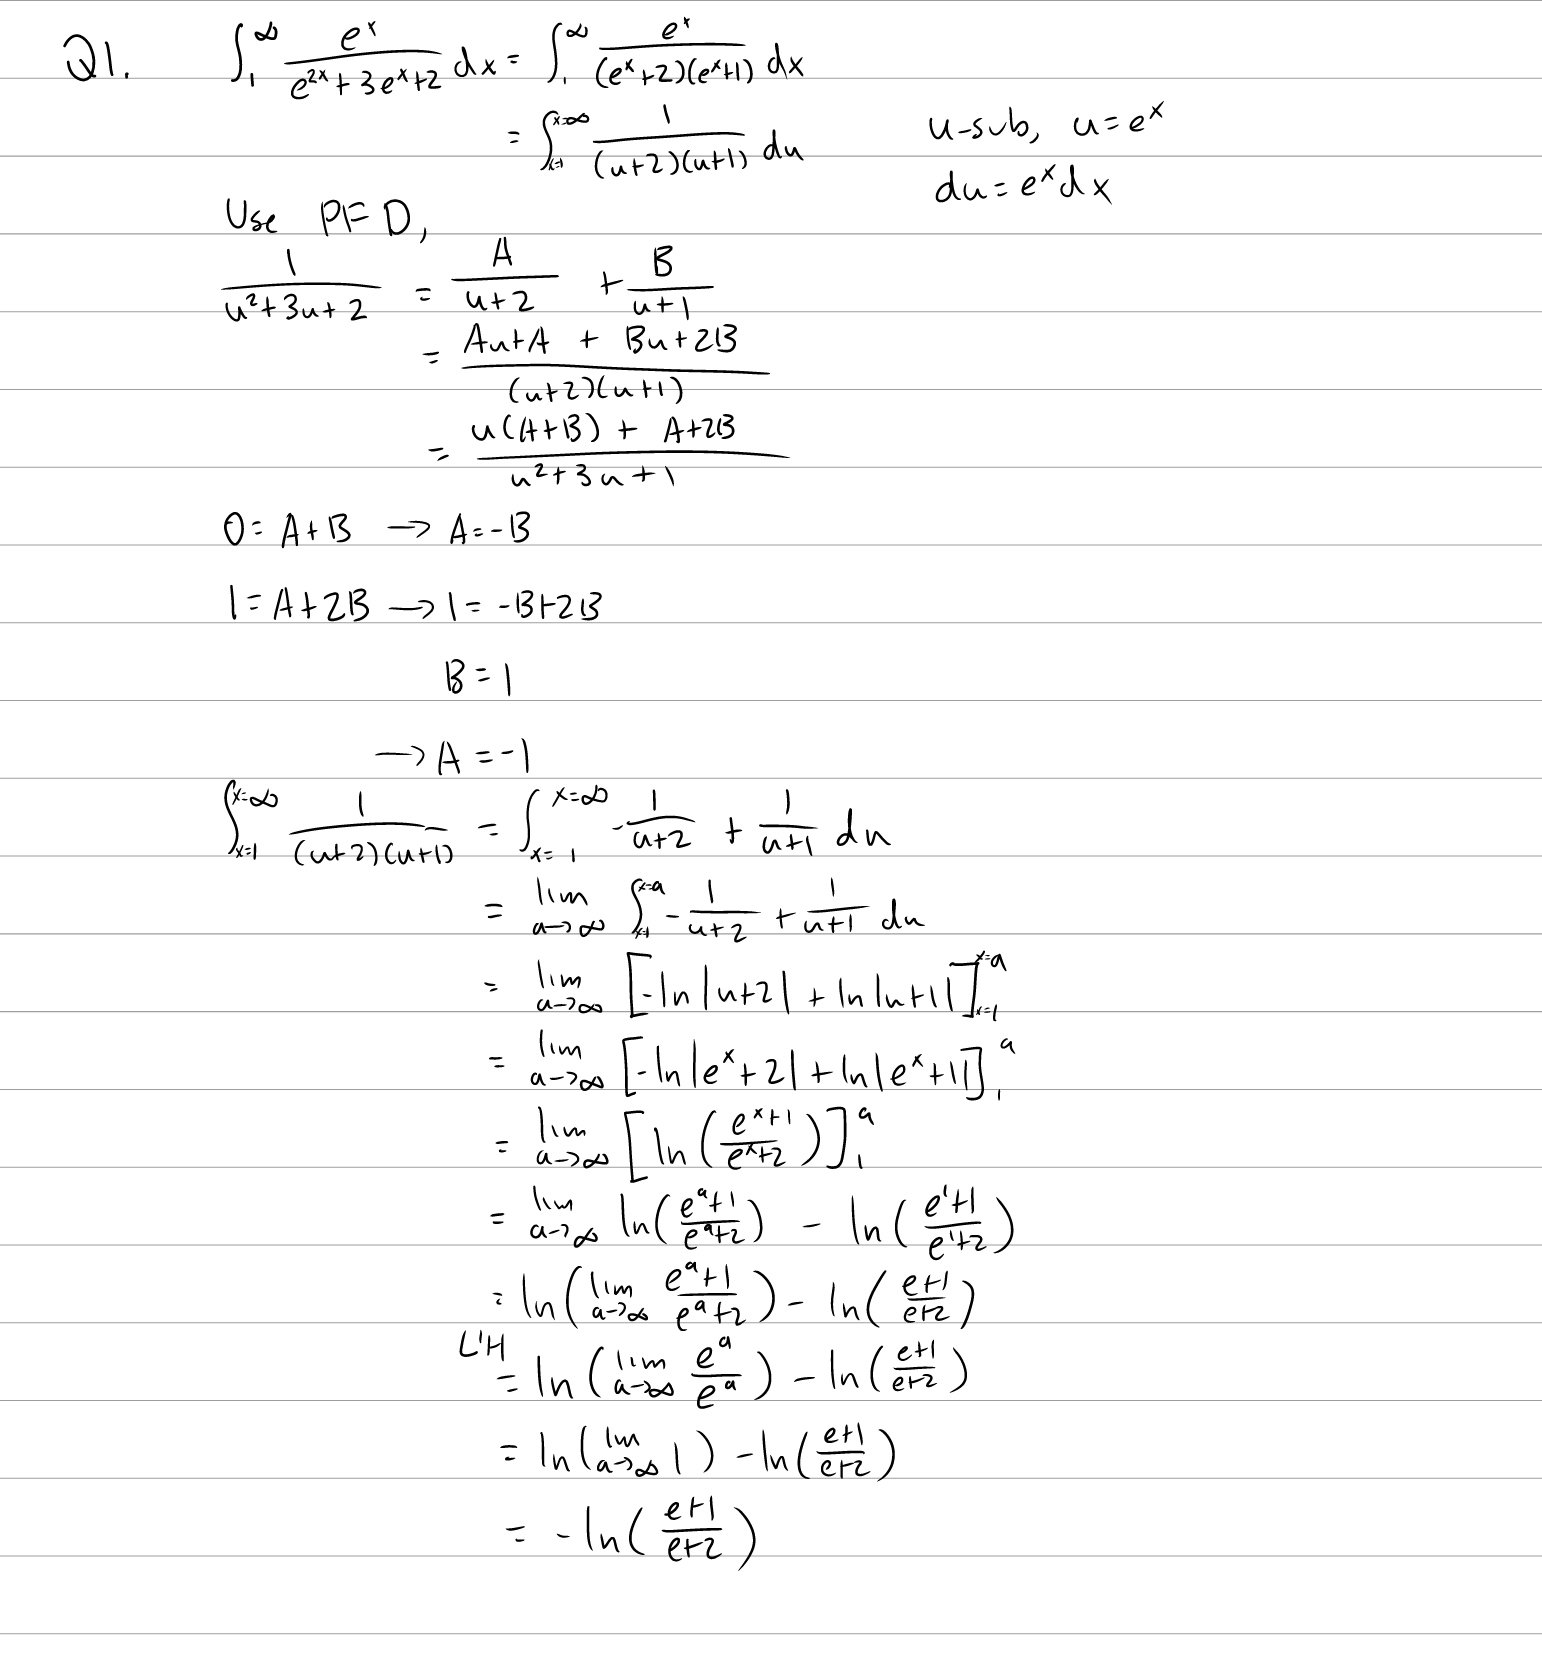 Q1. ∫_1^∞ e^x/(e^{2x}+3e^x+2) dx = ∫_1^∞ e^x/((e^x+2)(e^x+1)) dx
= ∫_{x=1}^{x=∞} 1/((u+2)(u+1)) du
u-sub, u=e^x
du=e^x dx
Use PFD,
1/(u^2+3u+2) = A/(u+2) + B/(u+1)
= (Au+A + Bu+2B)/((u+2)(u+1))
= (u(A+B) + A+2B)/(u^2+3u+1)
0=A+B → A=-B
1=A+2B → 1=-B+2B
B=1
→ A=-1
∫_{x=1}^{x=∞} 1/((u+2)(u+1)) = ∫_{x=1}^{x=∞} -1/(u+2) + 1/(u+1) du
= lim_{a→∞} ∫_{x=1}^{x=a} -1/(u+2) + 1/(u+1) du
= lim_{a→∞} [-ln|u+2| + ln|u+1|]_{x=1}^{x=a}
= lim_{a→∞} [-ln|e^x+2| + ln|e^x+1|]_1^a
= lim_{a→∞} [ln((e^x+1)/(e^x+2))]_1^a
= lim_{a→∞} ln((e^a+1)/(e^a+2)) - ln((e^1+1)/(e^1+2))
= ln(lim_{a→∞} (e^a+1)/(e^a+2)) - ln((e+1)/(e+2))
L'H = ln(lim_{a→∞} e^a/e^a) - ln((e+1)/(e+2))
= ln(lim_{a→∞} 1) - ln((e+1)/(e+2))
= -ln((e+1)/(e+2))